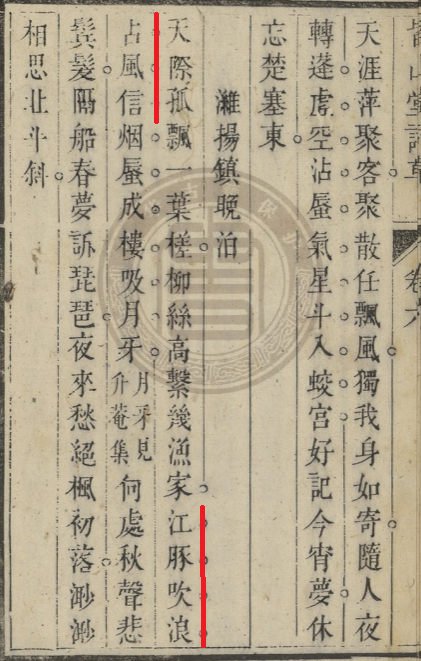 天涯萍聚客聚散任飄風獨我身如寄隨人夜
轉蓬虛空沾蜃氣星斗入蛟宮好記今宵夢休
忘楚塞東
濉揚鎮晚泊
天際孤飄一葉槎柳絲高繫幾漁家江豚吹浪
占風信烟蜃成樓吸月牙月牙見升菴集何處秋聲悲
鬓髮隔船春夢訴琵琶夜來愁絕楓初落渺渺
相思北斗斜